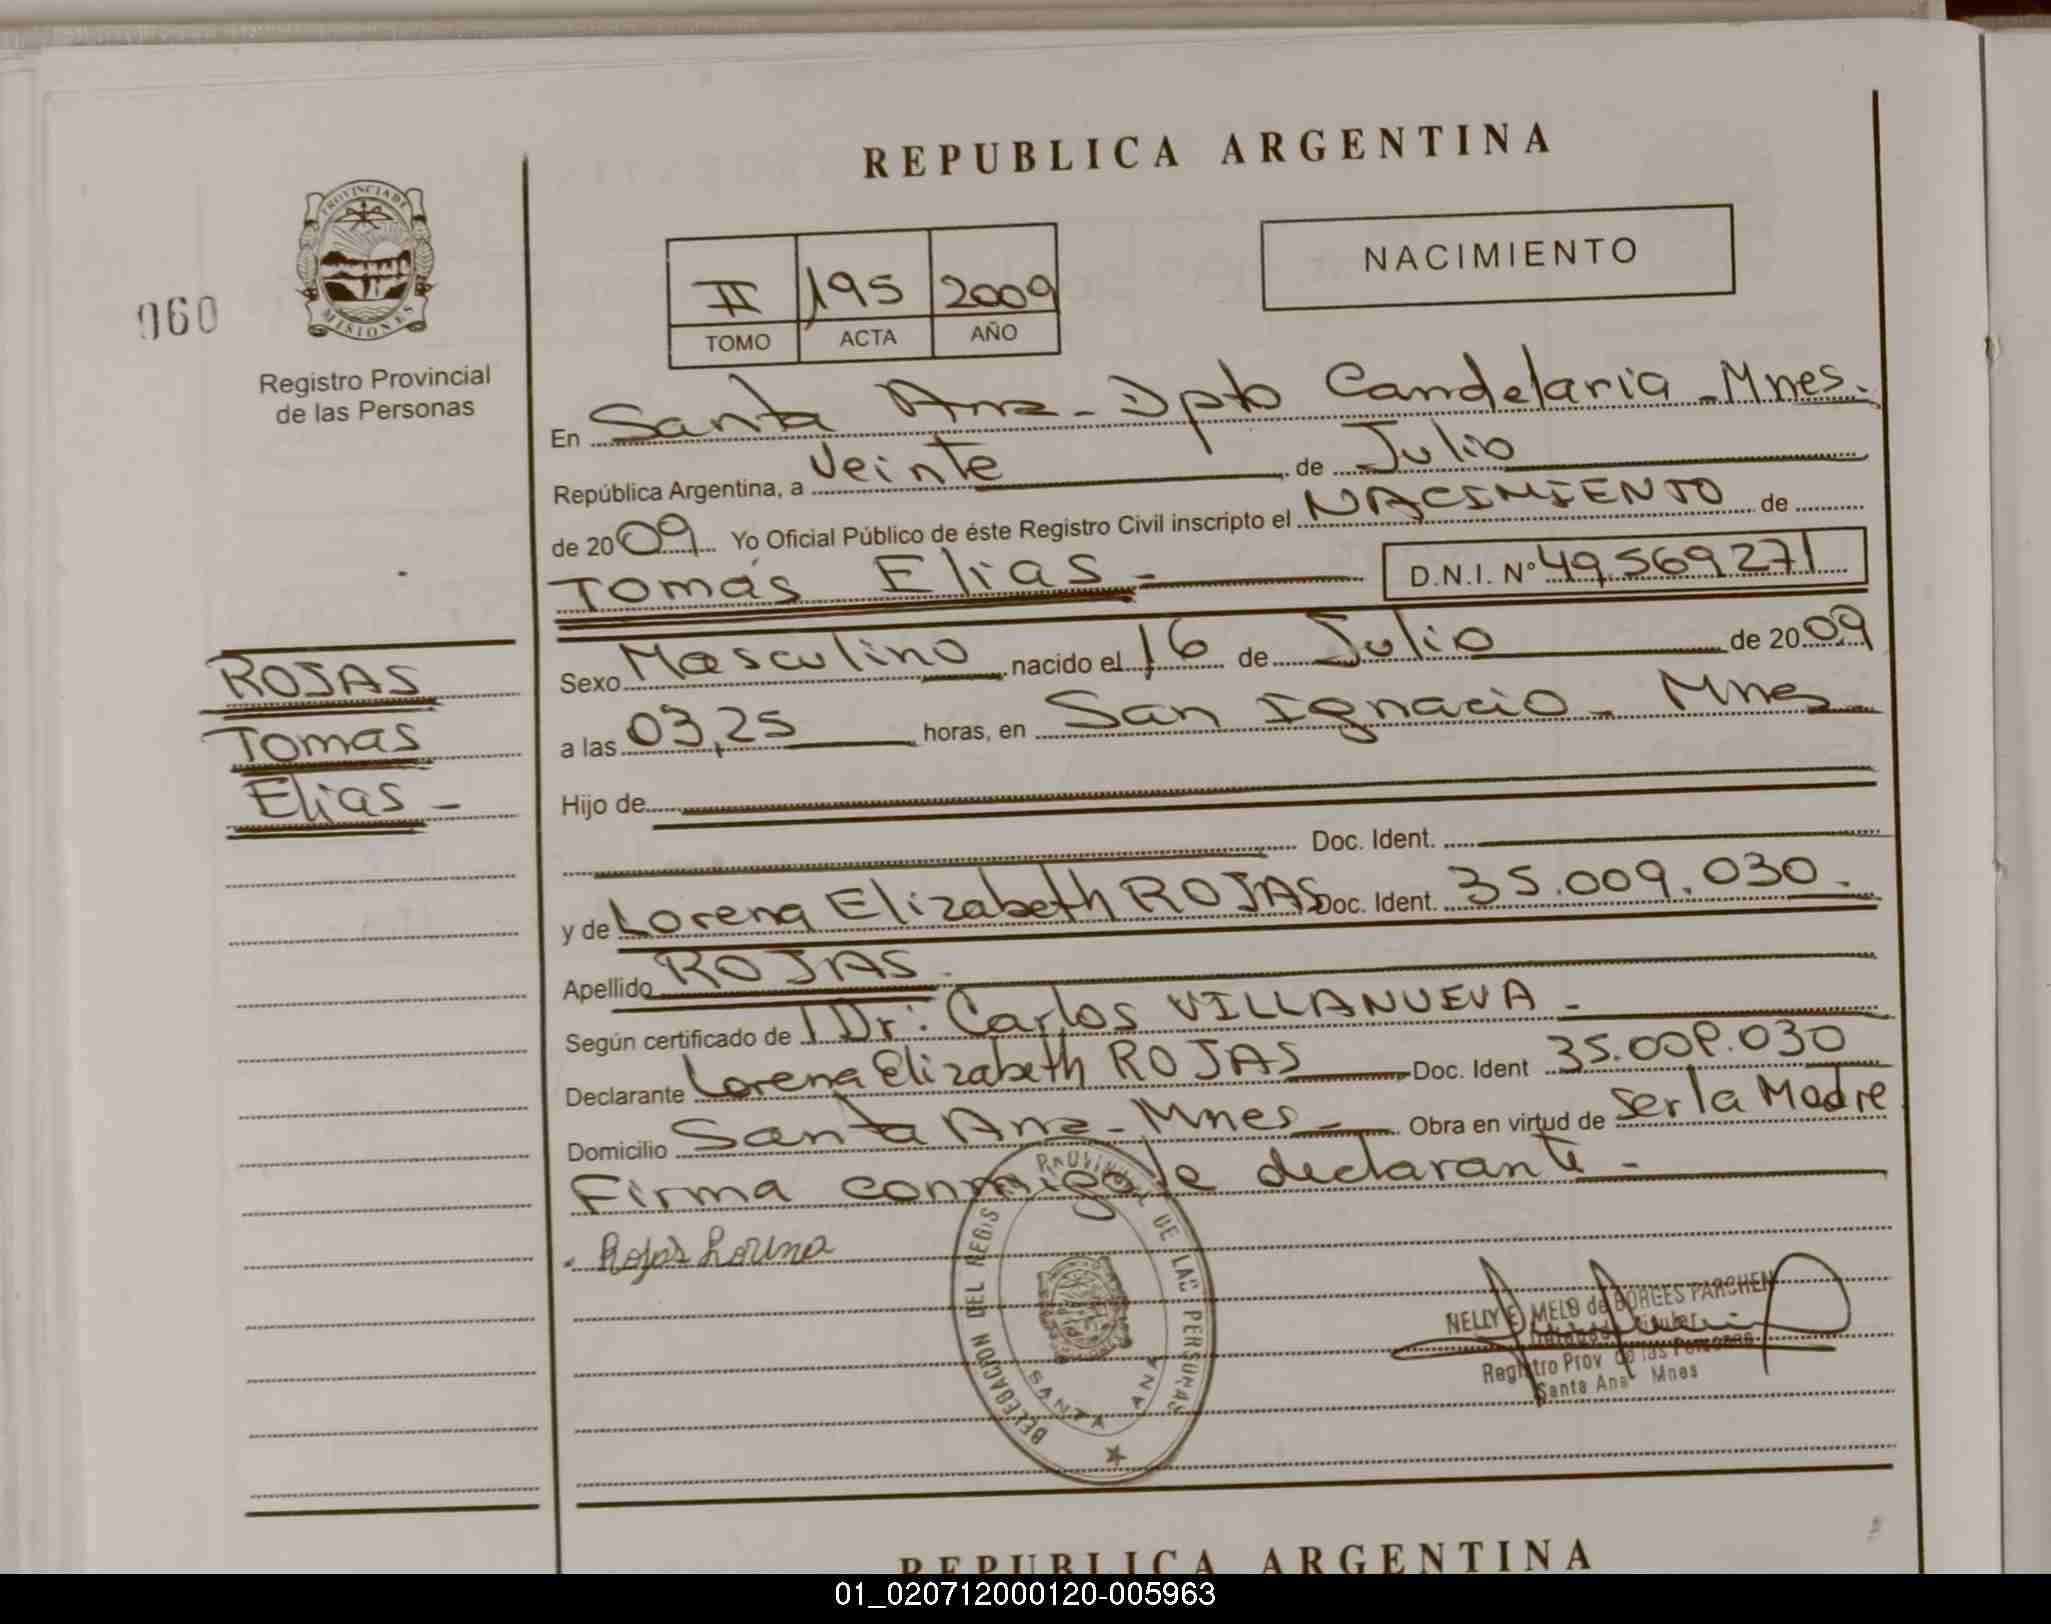 REPUBLICA ARGENTINA
NACIMIENTO
II 195 2009
TOMO ACTA AÑO
060
PROVINCIA DE MISIONES
Registro Provincial
de las Personas
En Santa Ana - Dpto Candelaria - Mnes.
República Argentina, a Veinte de Julio
de 2009 Yo Oficial Público de éste Registro Civil inscripto el NACIMIENTO de
Tomás Elias - D.N.I. N° 49.569.271
ROJAS
Tomas
Elias -
Sexo Masculino nacido el 16 de Julio de 2009
a las 03,25 horas, en San Ignacio - Mnes
Hijo de
Doc. Ident.
y de Lorena Elizabeth ROJAS Doc. Ident. 35.009.030.-
Apellido ROJAS.
Según certificado de Dr: Carlos VILLANUEVA -
Declarante Lorena Elizabeth ROJAS Doc. Ident 35.009.030
Domicilio Santa Ana - Mnes - Obra en virtud de ser la Madre
Firma conmigo la declarante -
Rojas Lorena
DELEGACION DEL REGIS PROVINCIAL DE LAS PERSONAS
SANTA ANA
NELLY E. MELO de BORGES PARCHEN
Registro Prov de las Personas
Santa Ana Mnes
REPUBLICA ARGENTINA
01_020712000120-005963